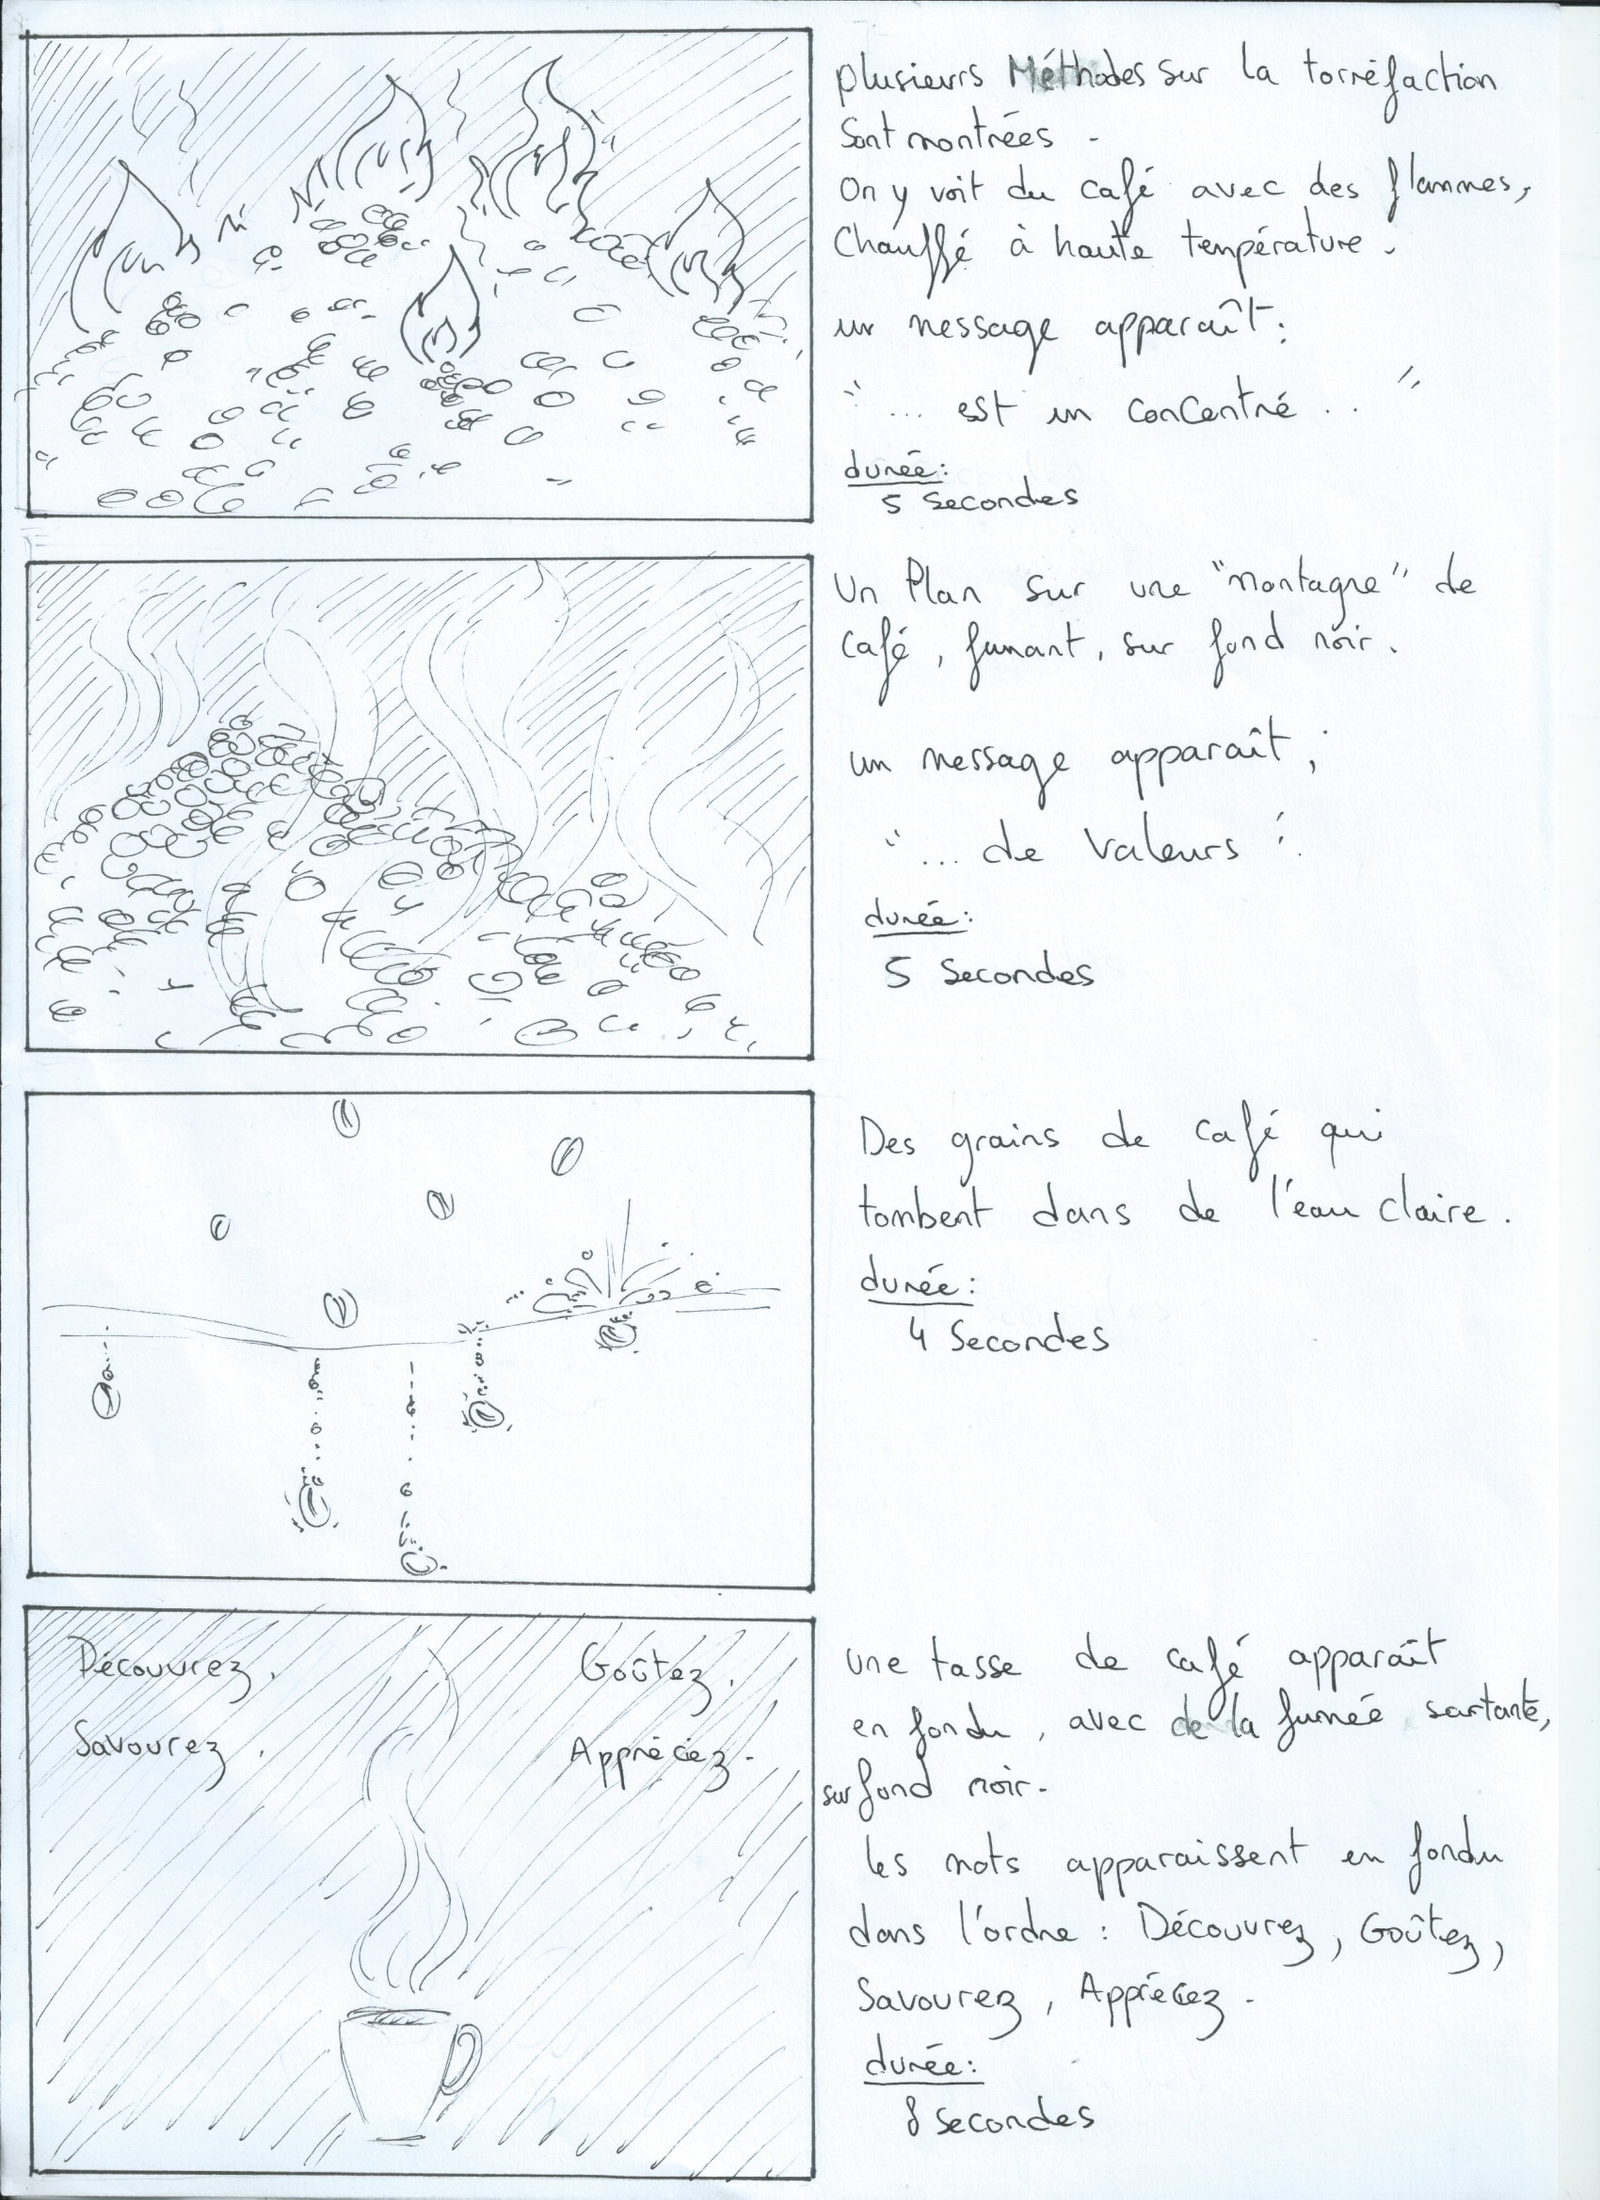 plusieurs Méthodes sur la torréfaction
Sont montrées -
On y voit du café avec des flammes,
Chauffé à haute température.
un message apparaît :
"... est un concentré .. "
durée :
5 Secondes
Un Plan sur une "montagne" de
café, fumant, sur fond noir.
un message apparaît ;
"... de Valeurs ".
durée :
5 Secondes
Des grains de café qui
tombent dans de l'eau claire.
durée :
4 Secondes
Découvrez.
Goûtez.
Savourez.
Appréciez.
une tasse de café apparaît
en fondu, avec de la fumée sortante,
sur fond noir.
les mots apparaissent en fondu
dans l'ordre : Découvrez, Goûtez,
Savourez, Appréciez.
durée :
8 Secondes